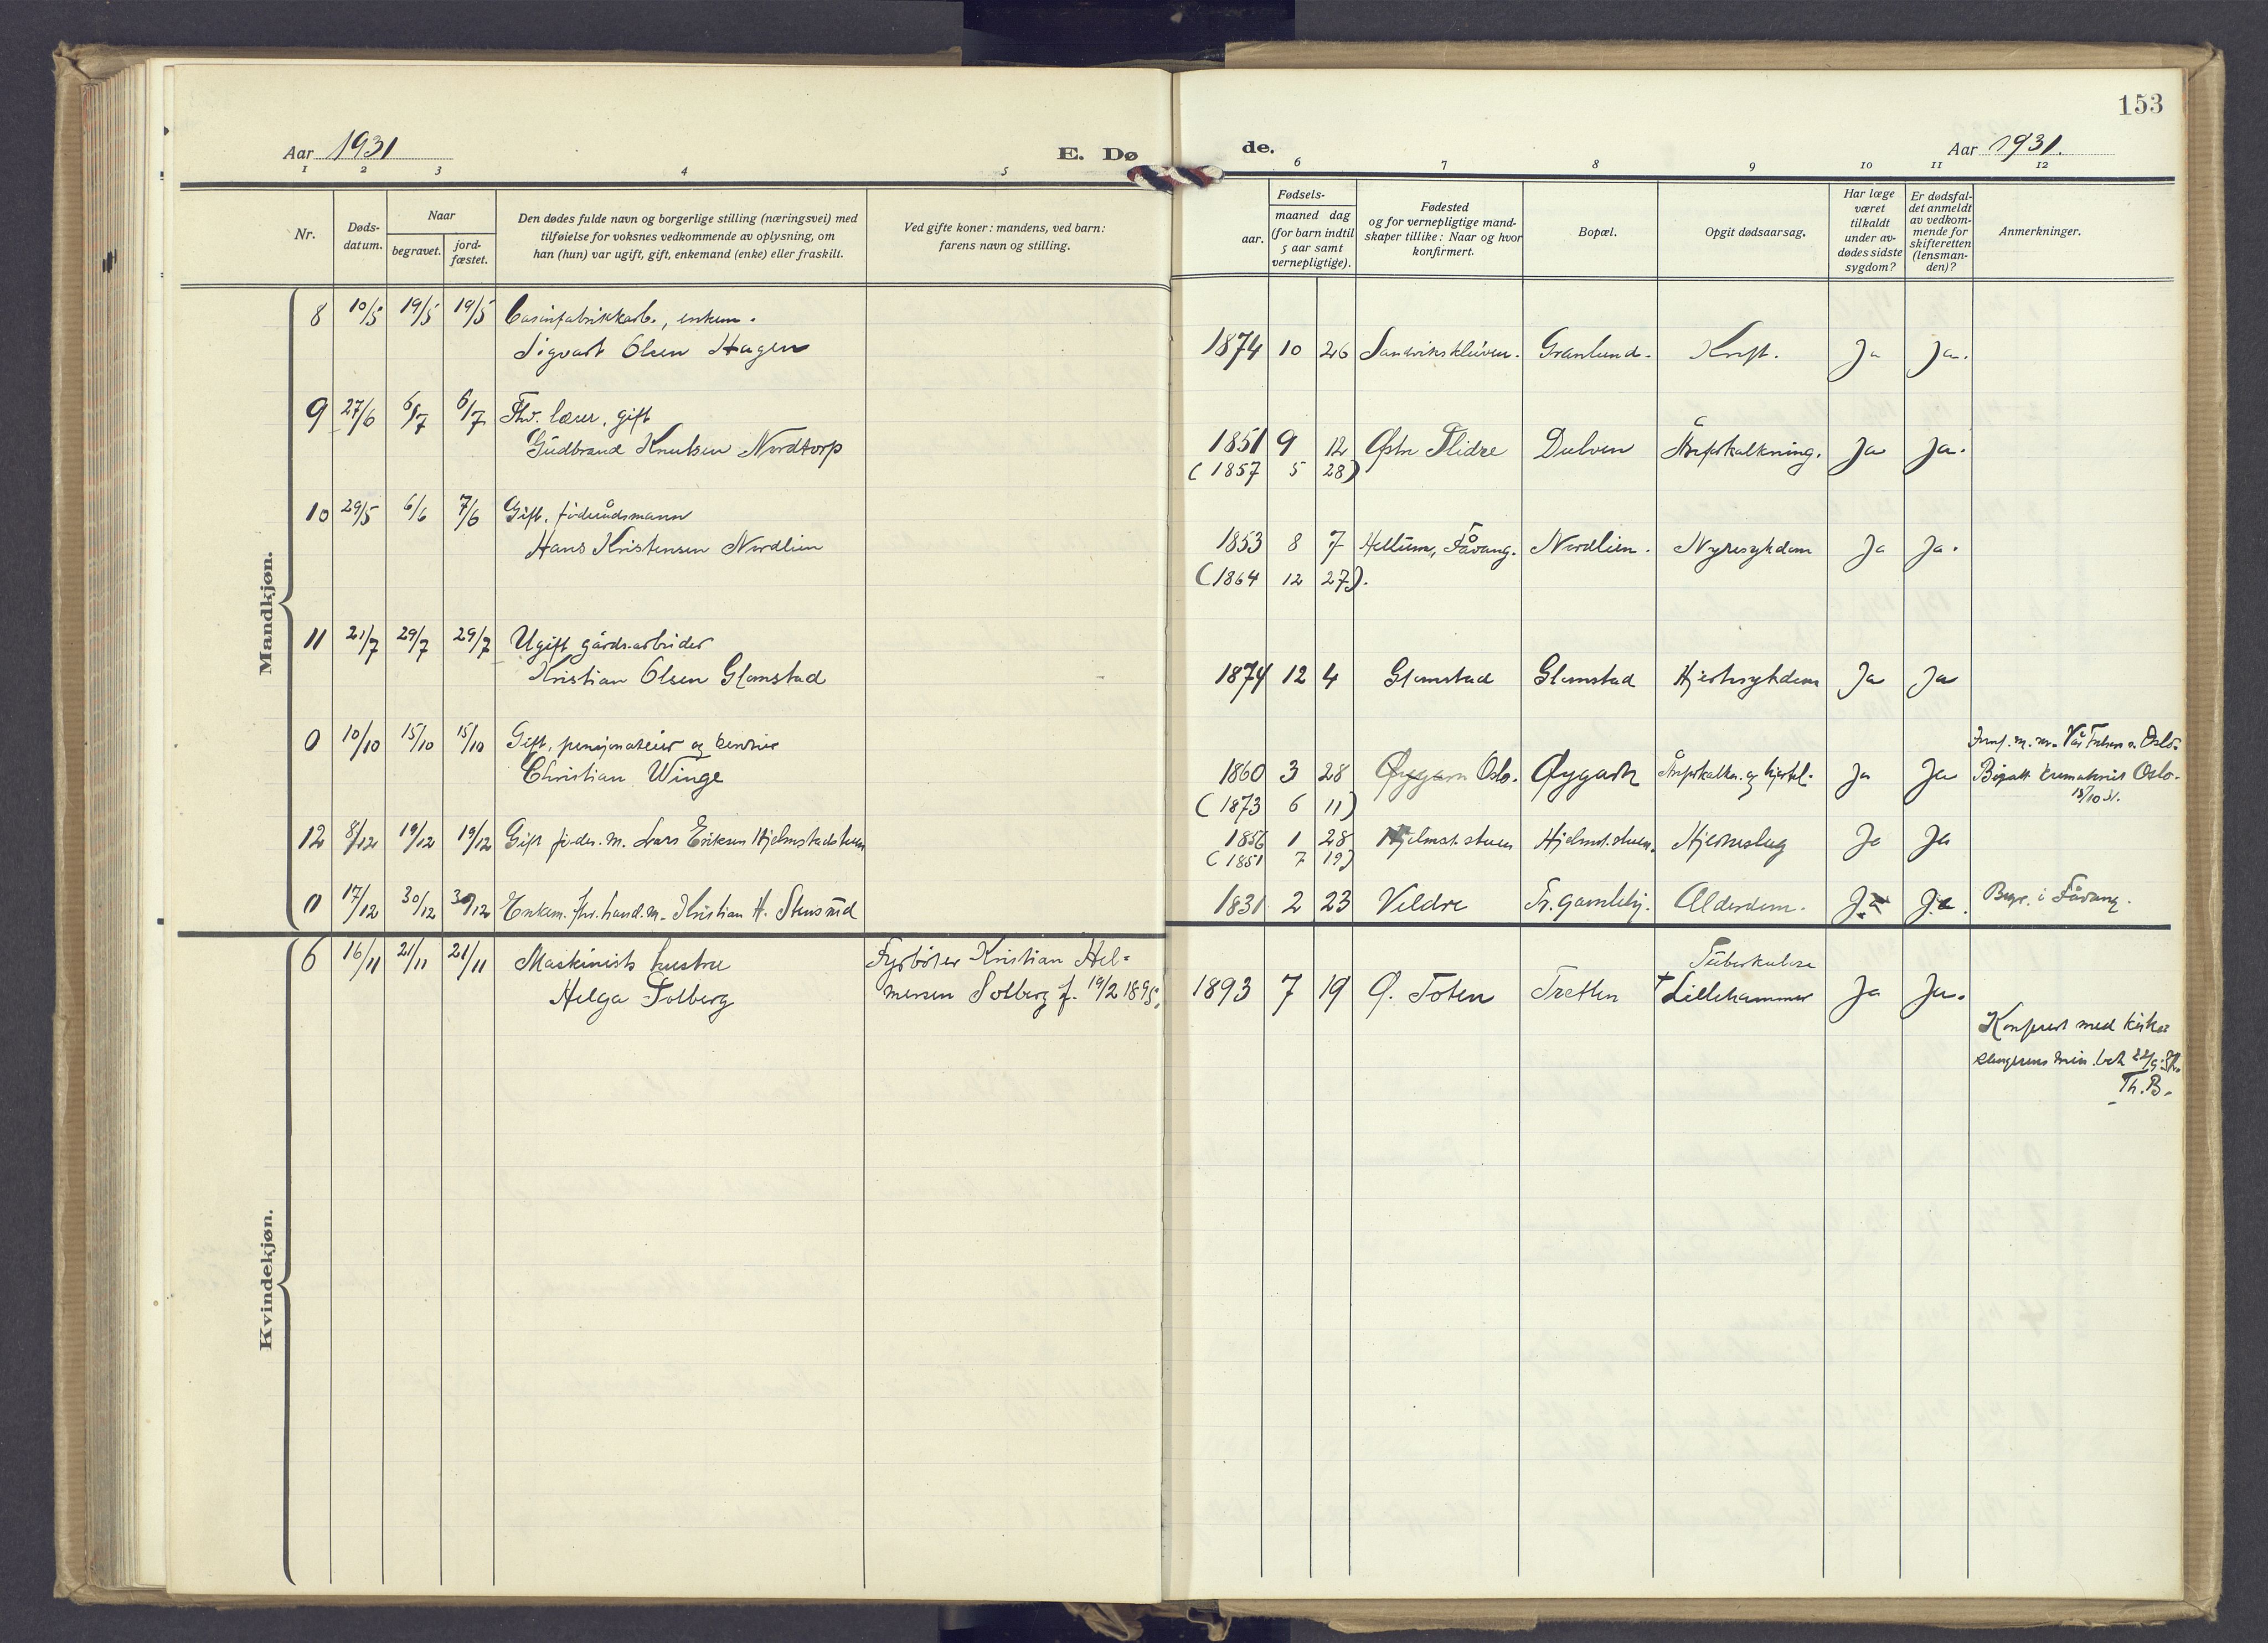 153
Aar 1931
E. Dø
de.
Aar 1931.
1 2 3 4 5
6 7 8 9 10 11 12
Nr.
Døds-
datum.
Naar
begravet.
jord-
fæstet.
Den dødes fulde navn og borgerlige stilling (næringsvei) med
tilføielse for voksnes vedkommende av oplysning, om
han (hun) var ugift, gift, enkemand (enke) eller fraskilt.
Ved gifte koner: mandens, ved barn:
farens navn og stilling.
Fødsels-
aar.
maaned dag
(for barn indtil
5 aar samt
vernepligtige).
Fødested
og for vernepligtige mand-
skaper tillike: Naar og hvor
konfirmert.
Bopæl.
Opgit dødsaarsag.
Har læge
været
tilkaldt
under av-
dødes sidste
sygdom?
Er dødsfal-
det anmeldt
av vedkom-
mende for
skifteretten
(lensman-
den)?
Anmerkninger.
Mandkjøn.
8 10/5 19/5 19/5 Casinfabrikkarb., enkem.
Sigvart Olsen Hagen
1874 10 26 Sandvikskleiven. Granlund. Kreft. Ja Ja.
9 27/6 6/7 6/7 Fhv. lærer, gift
Gudbrand Knutsen Nordtorp
1851 9 12 Østre Slidre Dulven Åreforkalkning. Ja Ja.
(1857 5 28)
10 29/5 6/6 7/6 Gift. föderådsmann
Hans Kristensen Nordlien
1853 8 7 Hellum, Fåvang. Nordlien. Nyresykdom Ja Ja.
(1864 12 27).
11 21/7 29/7 29/7 Ugift gårdsarbeider
Kristian Olsen Glomstad
1874 12 4 Glomstad Glomstad Hjertesykdom Ja Ja
0 10/10 15/10 15/10 Gift, pensjonateier og
Christian Winge
1860 3 28 Oslo. Øygarn Ja Ja
Vår Frelsers Oslo.
Bisatt krematoriet Oslo.
15/10 31.
(1873 6 11)
12 8/12 19/12 19/12 Gift föder. m. Lars Eriksen Hjelmstadstuen
1856 1 28 Hjelmst.stuen Hjelmst.stuen. Hjerneslag Ja Ja
(1851 7 19)
0 17/12 30/12 30/12 Enkem. fhv. hand.m. Kristian H. Stensrud
1831 2 23 Veldre Tr. gamlehj. Alderdom. Ja Ja. Begr. i Fåvang.
Kvindekjøn.
6 16/11 21/11 21/11 Maskinists hustru
Helga Solberg
Fyrböter Kristian Hel-
mersen Solberg f. 19/2 1895.
Tuberkulose
1893 7 19 Ø. Toten Tretten † Lillehammer Ja Ja.
Konferert med kirke-
sangerens min. bok
Th. B.